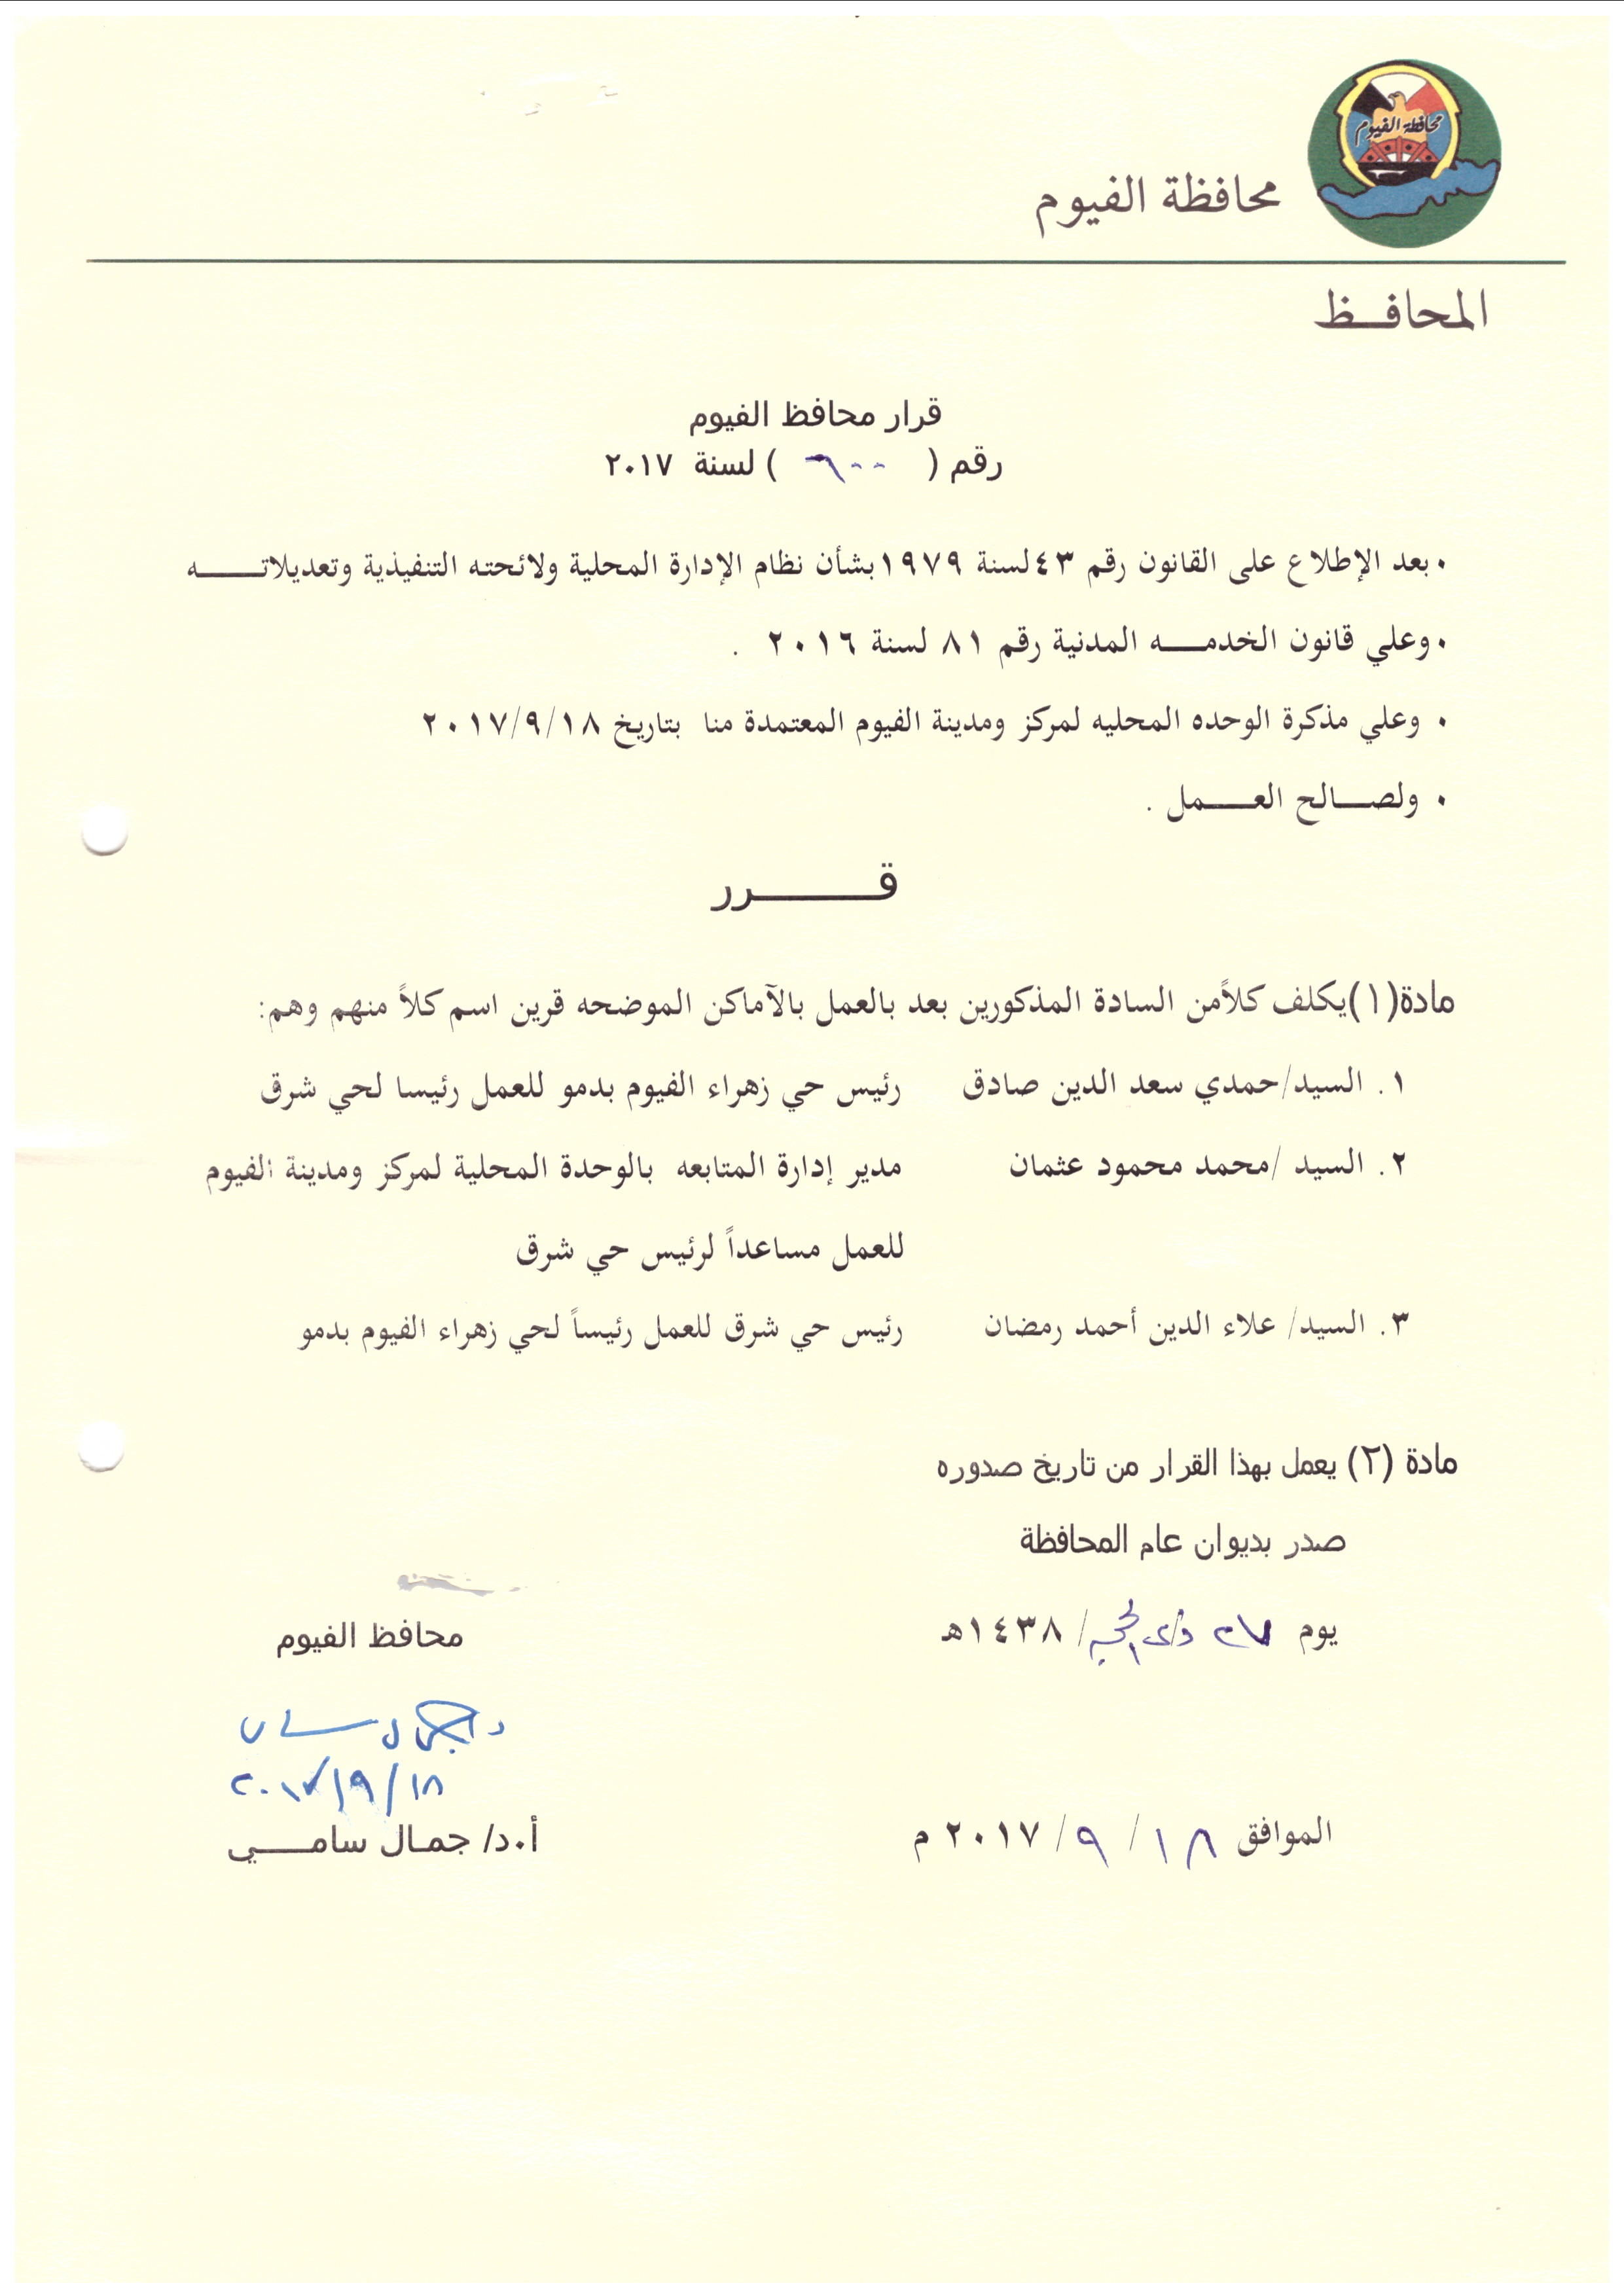 محافظة الفيوم
محافظة الفيوم
المحافــظ
قرار محافظ الفيوم
رقم ( ٦٠٠ ) لسنة ٢٠١٧
• بعد الإطلاع على القانون رقم ٤٣ لسنة ١٩٧٩ بشأن نظام الإدارة المحلية ولائحته التنفيذية وتعديلاتــــه
• وعلي قانون الخدمـــه المدنية رقم ٨١ لسنة ٢٠١٦ .
• وعلي مذكرة الوحده المحليه لمركز ومدينة الفيوم المعتمدة منا بتاريخ ٢٠١٧/٩/١٨
• ولصـــالح العــــمل .
قـــــــرر
مادة(١)يكلف كلاًمن السادة المذكورين بعد بالعمل بالآماكن الموضحه قرين اسم كلاً منهم وهم:
١. السيد/حمدي سعد الدين صادق رئيس حي زهراء الفيوم بدمو للعمل رئيسا لحي شرق
٢. السيد /محمد محمود عثمان مدير إدارة المتابعه بالوحدة المحلية لمركز ومدينة الفيوم
للعمل مساعداً لرئيس حي شرق
٣. السيد/ علاء الدين أحمد رمضان رئيس حي شرق للعمل رئيساً لحي زهراء الفيوم بدمو
مادة (٢) يعمل بهذا القرار من تاريخ صدوره
صدر بديوان عام المحافظة
يوم ٢٧ ذى الحجه/ ١٤٣٨هـ
محافظ الفيوم
٢٠١٧/٩/١٨
الموافق ١٨ / ٩ / ٢٠١٧ م
أ.د/ جمـال سامــــي